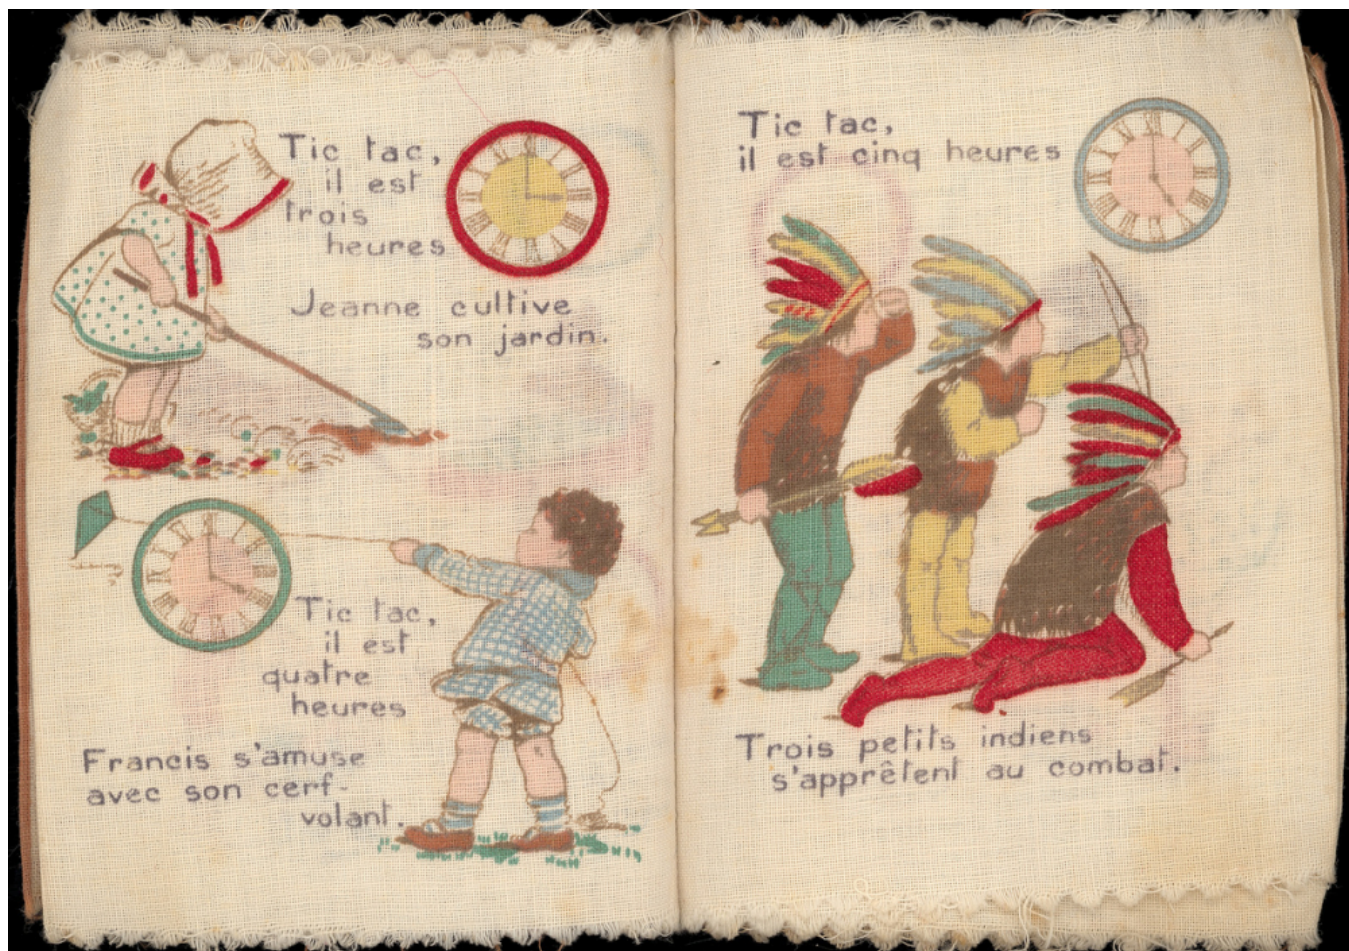 Tic tac,
il est
trois
heures
Jeanne cultive
son jardin.
Tic tac,
il est
quatre
heures
Francis s'amuse
avec son cerf-
volant.
Tic tac,
il est cinq heures
Trois petits indiens
s'apprêtent au combat.